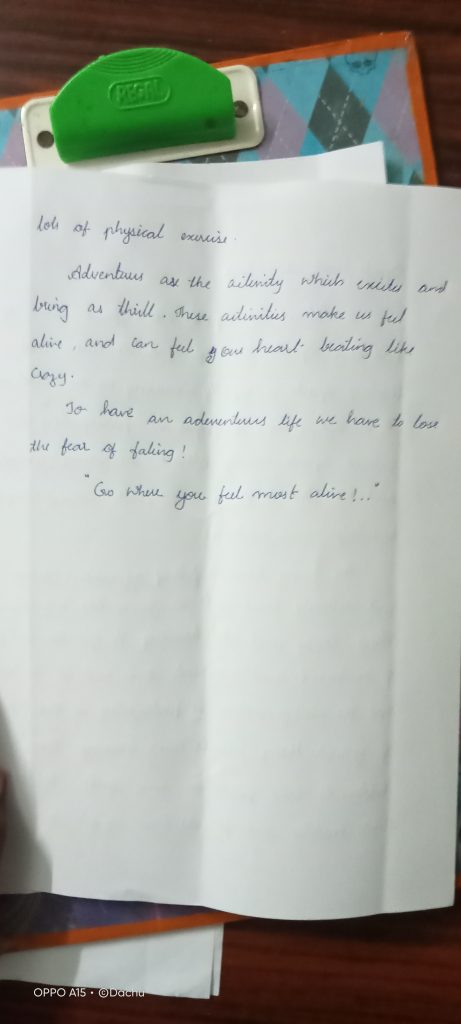 REGAL
lots of physical exercise.
Adventures are the aitivity which excites and
bring as thrill. These aitinities make us feel
alive, and can feel your heart beating like
crazy.
To have an adeventurus life we have to lose
the fear of faling!
"Go where you feel most alive!.."
OPPO A15 • ©Dachu